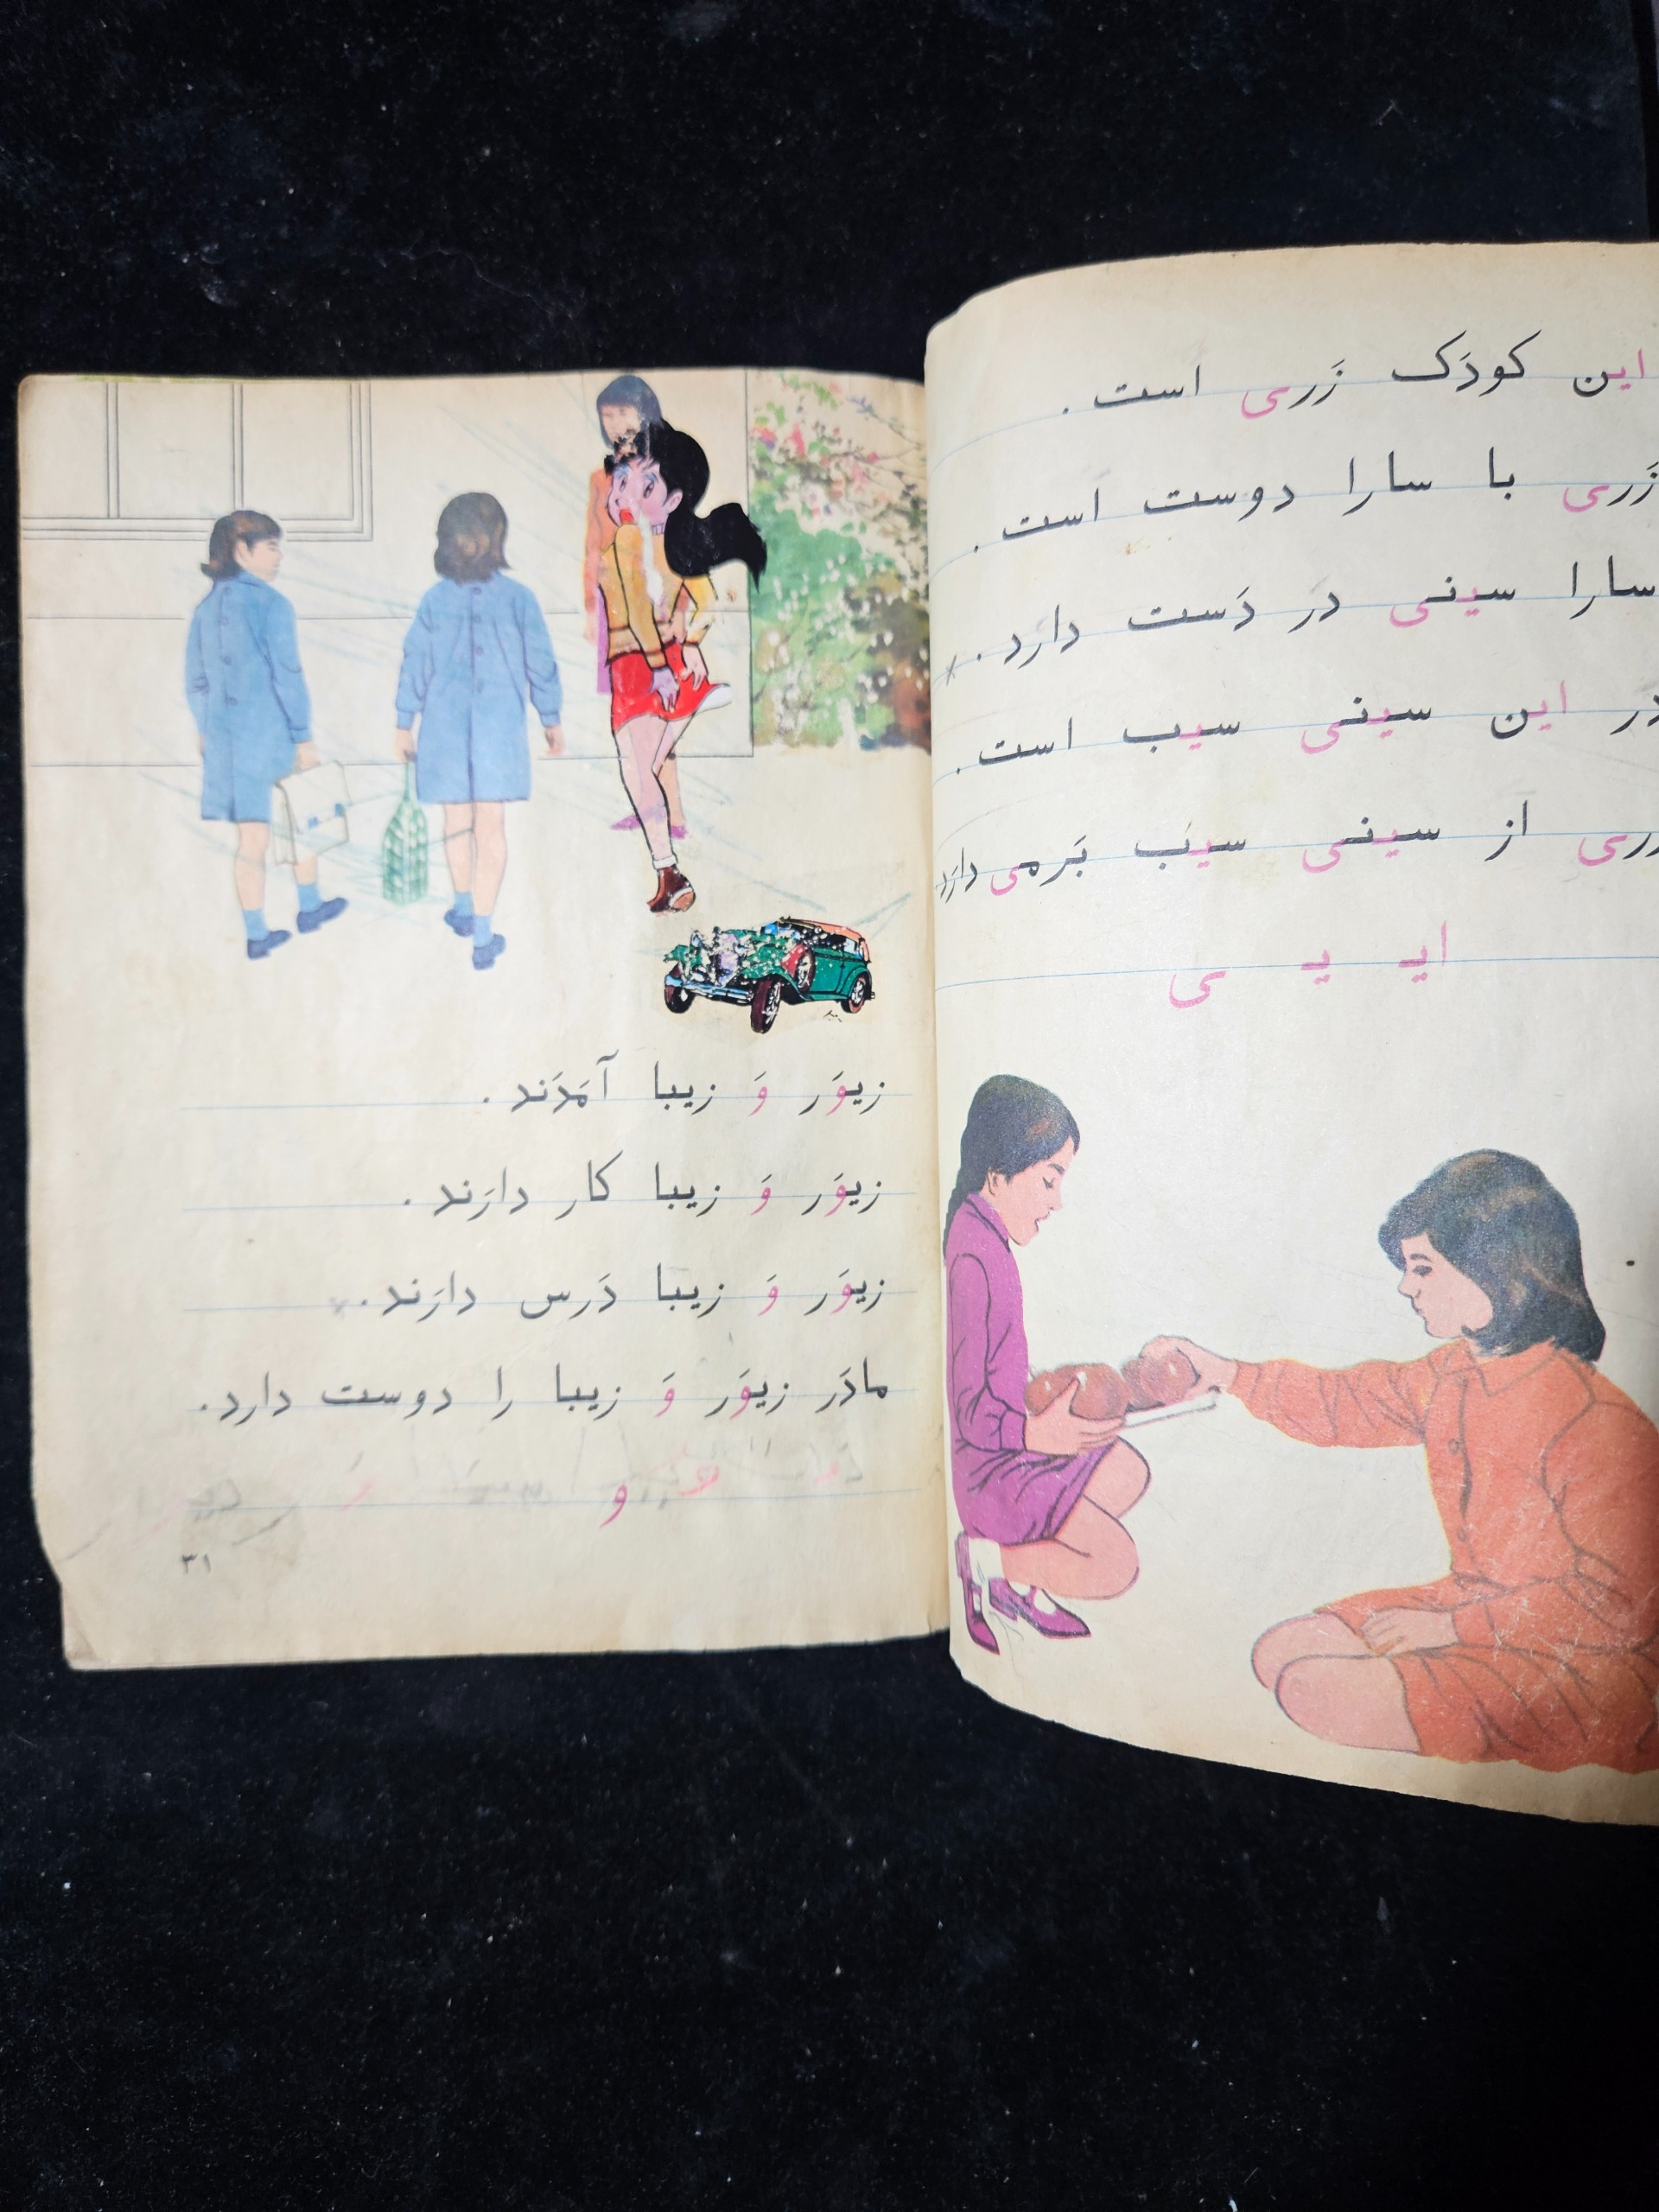 این کودَک زَری است .
زَری با سارا دوست است .
سارا سینی در دَست دارد .
در این سینی سیب است .
زری از سینی سیب بَرمی دارَد
ایـ یـ ی
زیوَر وَ زیبا آمَدَند .
زیوَر وَ زیبا کار دارَند .
زیوَر وَ زیبا دَرس دارَند .
مادَر زیوَر وَ زیبا را دوست دارد .
و
۳۱